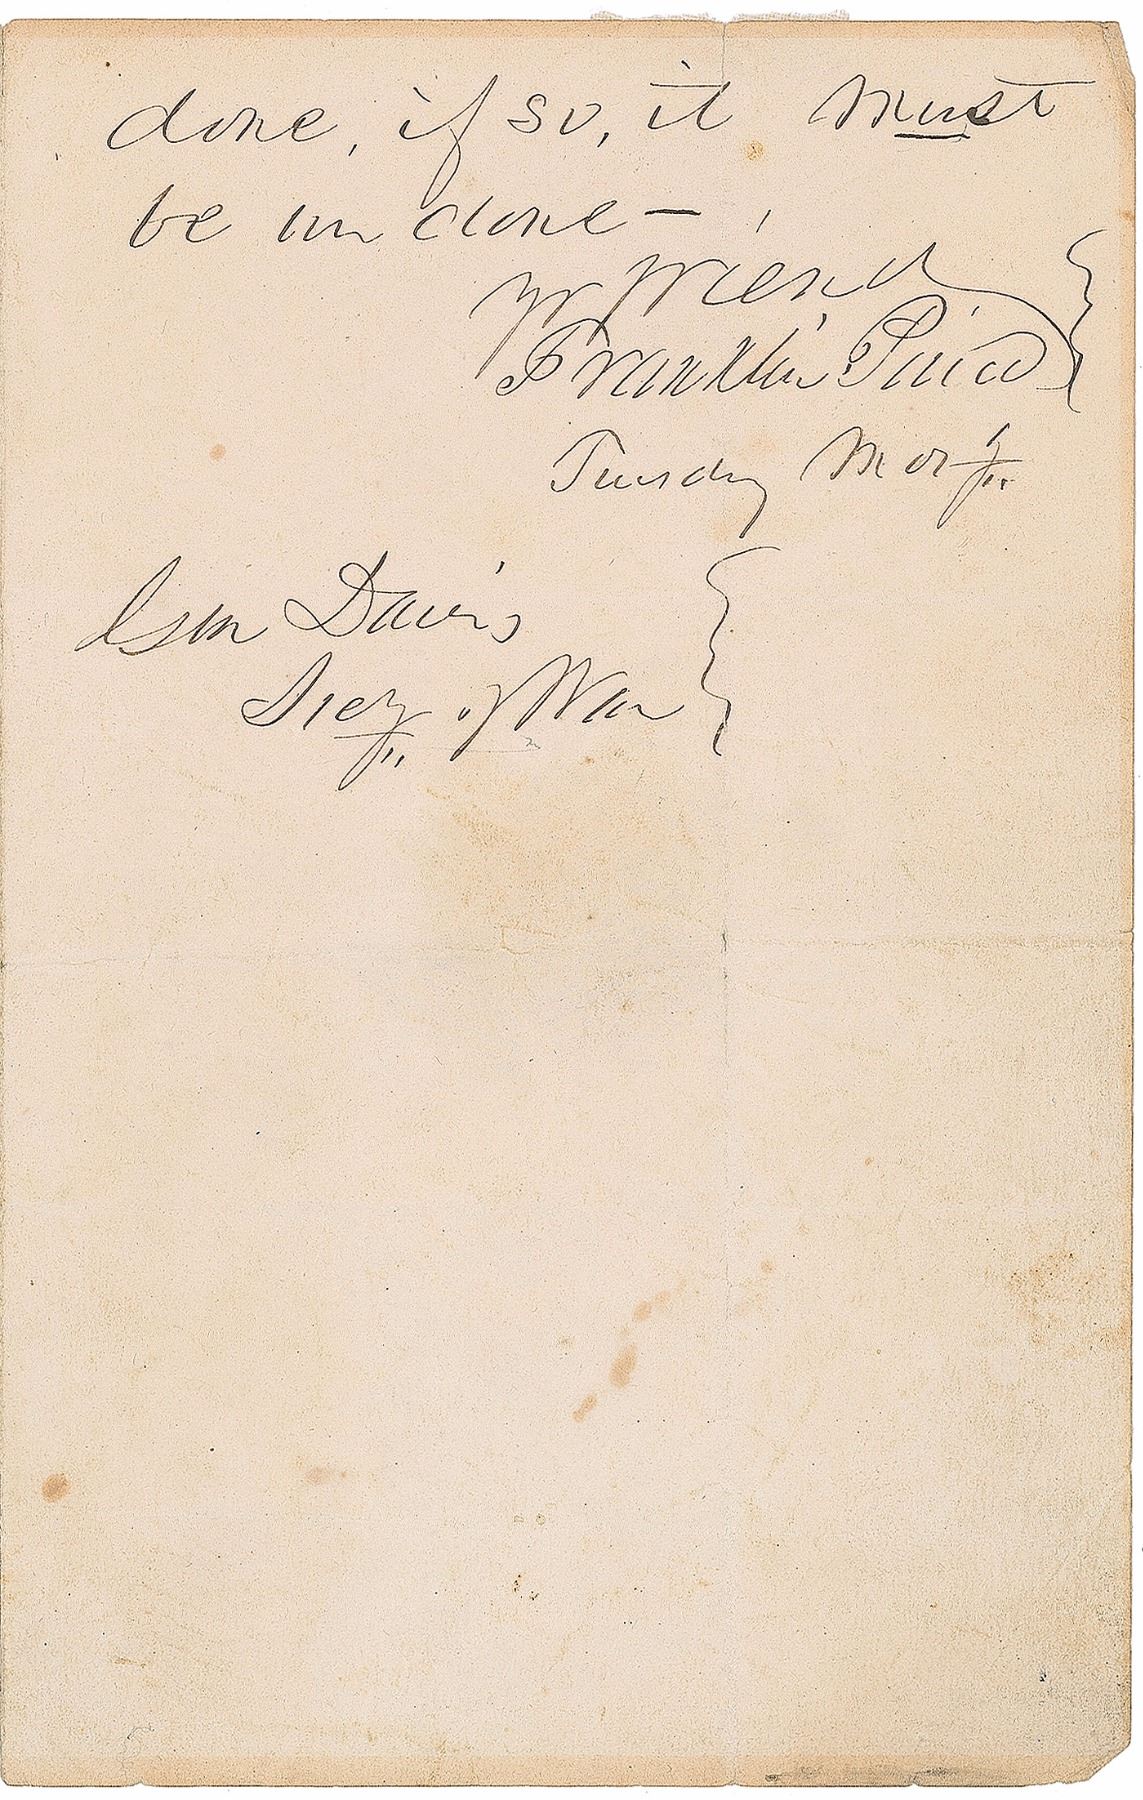 done, if so, it must
be un done –
Yr friend
Franklin Pierce
Tuesday Morg
Gen Davis
Secy of War